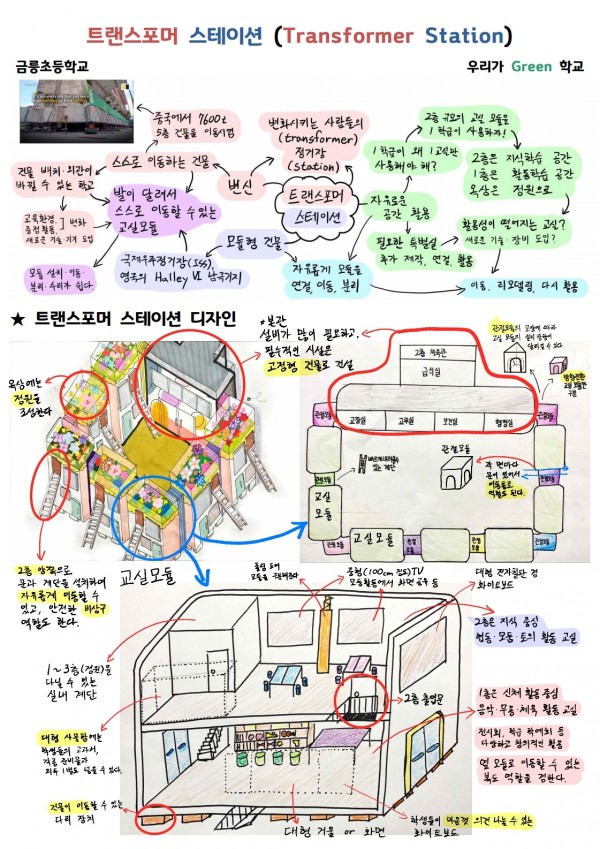 트랜스포머 스테이션 (Transformer Station)
금릉초등학교
우리가 Green 학교
중국에서 7600t
5층 건물을 이동시킴
스스로 이동하는 건물
건물 배치·외관이
바뀔 수 있는 학교
교육환경,
중점활동,
새로운 기술·기기 도입
] 변화
발이 달려서
스스로 이동할 수 있는
교실모듈
모듈 설치·이동·
분리·수리가 쉽다.
변화시키는 사람들의
(transformer)
정거장
(Station)
변신
트랜스포머
스테이션
모듈형 건물
국제우주정거장(ISS),
영국의 Halley VI 남극기지
자유롭게 모듈을
연결, 이동, 분리
자유로운
공간 활용
1학급이 왜 1교실만
사용해야 해?
2층 규모의 교실 모듈을
1학급이 사용하자!
2층은 지식학습 공간
1층은 활동학습 공간
옥상은 정원으로
필요한 특별실
추가 제작, 연결, 활용
활용성이 떨어지는 교실?
새로운 기술·장비 도입?
이동, 리모델링, 다시 활용
★ 트랜스포머 스테이션 디자인
옥상에는
정원을
조성한다
*본관
설비가 많이 필요하고,
필수적인 시설은
고정형 건물로 건설
2층 체육관
급식실
교장실
교무실
보건실
행정실
관절모듈의 모양에 따라
교실 모듈의
관절모듈
있는 계단
관절모듈
각 면마다
문이 있어서
이동통로
역할도 된다.
교실
모듈
교실모듈
관절모듈
관절모듈
2층 양쪽으로
문과 계단을 설치하여
자유롭게 이동할 수
있고, 안전한 비상구
역할도 한다.
교실모듈
중형 (100cm 정도)TV
모둠활동에서 화면 공유 등
대형 전자칠판 겸
화이트보드
2층은 지식 중심
협동·모둠·토의 활동 교실
1~3층(정원)을
다닐 수 있는
실내 계단
2층 출입문
1층은 신체 활동 중심
음악·무용·체육 활동 교실
전시회, 학급 학예회 등
다양하고 창의적인 활동
옆 모듈로 이동할 수 있는
복도 역할을 겸한다.
대형 사물함에는
학생들의 교과서,
각종 준비물과
의류 1벌도 넣을 수 있다.
건물이 이동할 수 있는
다리 장치
대형 거울 or 화면
학생들이 마음껏 의견 나눌 수 있는
화이트보드